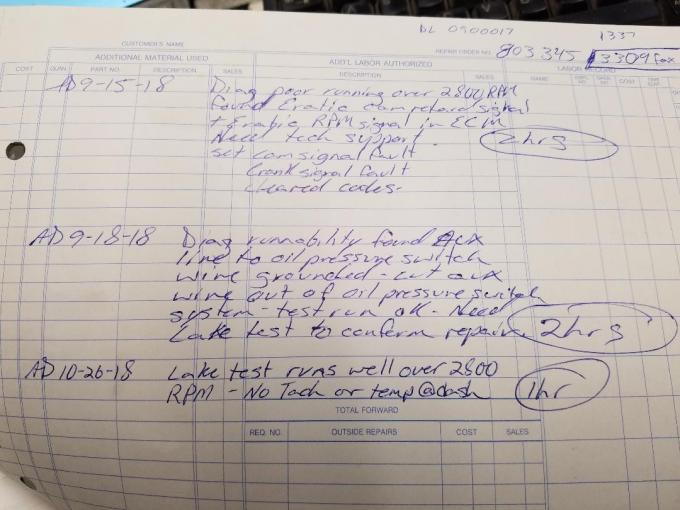 DL 0900017
1337
CUSTOMER'S NAME
REPAIR ORDER NO. 803345 3309 fax
ADDITIONAL MATERIAL USED
ADD'L LABOR AUTHORIZED
LABOR RECORD
COST QUAN. PART NO. DESCRIPTION SALES DESCRIPTION SALES NAME COST
AD 9-15-18 Diag poor running over 2800 RPM
found Eratic cam signal
+ Eratic RPM signal in ECM
Need tech support. 2hrs
set cam signal fault
Crank signal fault
cleared codes-
AD 9-18-18 Diag runnability found Aux
line to oil pressure switch
wire grounded - cut aux
wire out of oil pressure switch
system - test run ok - Need
Lake test to conferm repairs 2hrs
AD 10-26-18 Lake test runs well over 2800
RPM - No Tach or temp @ dash 1hr
TOTAL FORWARD
REQ. NO. OUTSIDE REPAIRS COST SALES